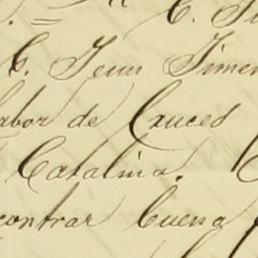 C.
C. Jesus Jimen
labor de Cruces
Catalina.
contrar buena